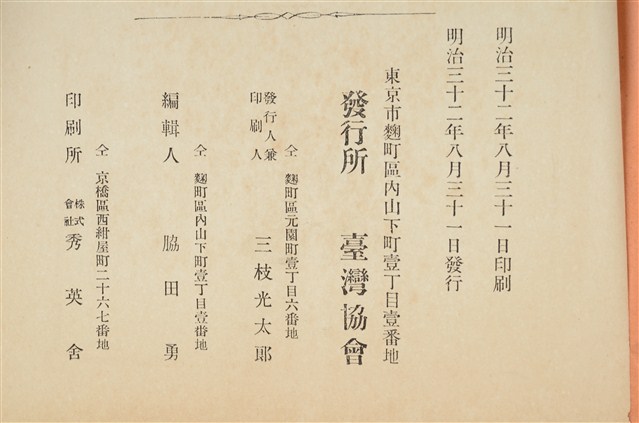 明治三十二年八月三十一日印刷
明治三十二年八月三十一日發行
東京市麴町區內山下町壹丁目壹番地
發行所 臺灣協會
仝 麴町區元園町壹丁目六番地
發行人兼印刷人 三枝光太郞
仝 麴町區內山下町壹丁目壹番地
編輯人 脇田勇
仝 京橋區西紺屋町二十六七番地
印刷所 株式會社 秀英舍